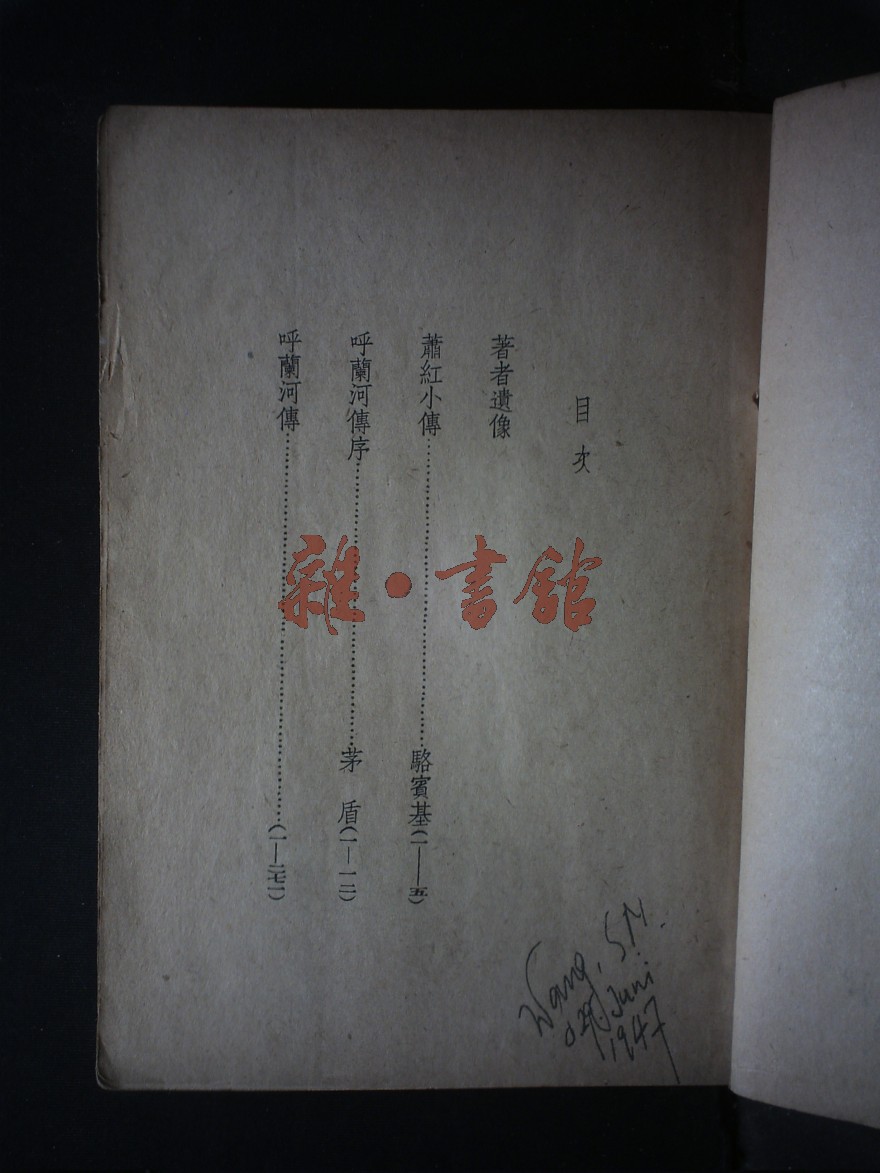 目次
著者遺像
蕭紅小傳……駱賓基(一——五)
呼蘭河傳序……茅盾(一—一二)
呼蘭河傳……(一—二七一)
雜·書館
Wang, S.M.
Juni
1947